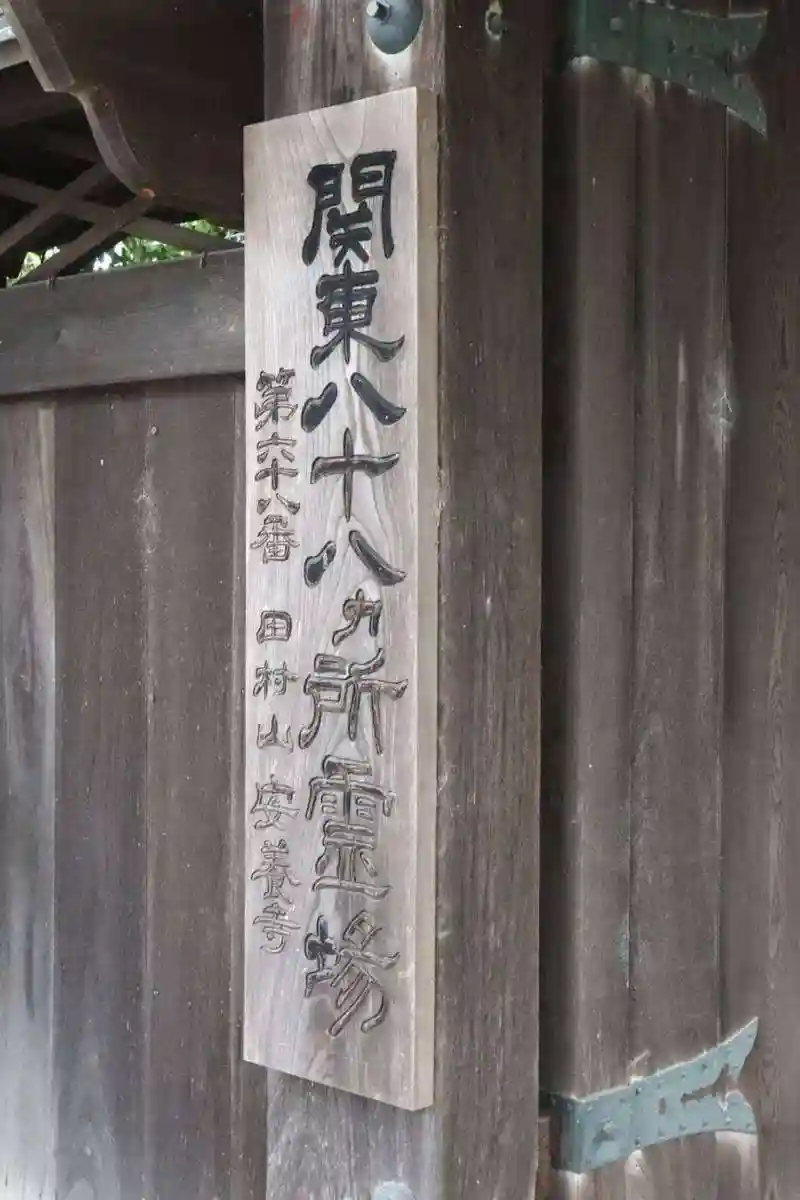 関東八十八ヵ所霊場
第六十八番 田村山 安養寺